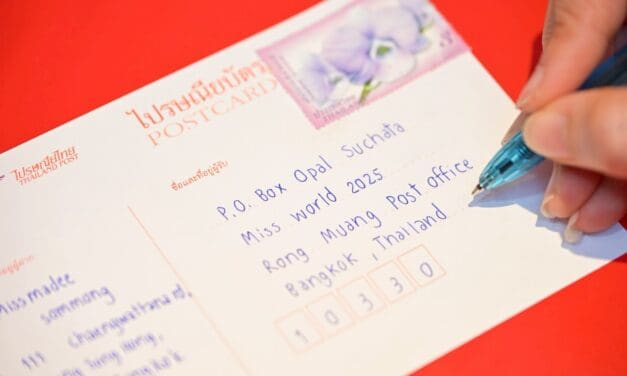 ไปรษณียบัตร
POSTCARD
ไปรษณีย์ไทย
THAILAND POST
ชื่อและที่อยู่ผู้รับ
P.O. Box Opal Suchata
Miss world 2025
Rong Muang Post office
Bangkok, Thailand
10330
Missmadee
sommong
111 chaengwattana rd.